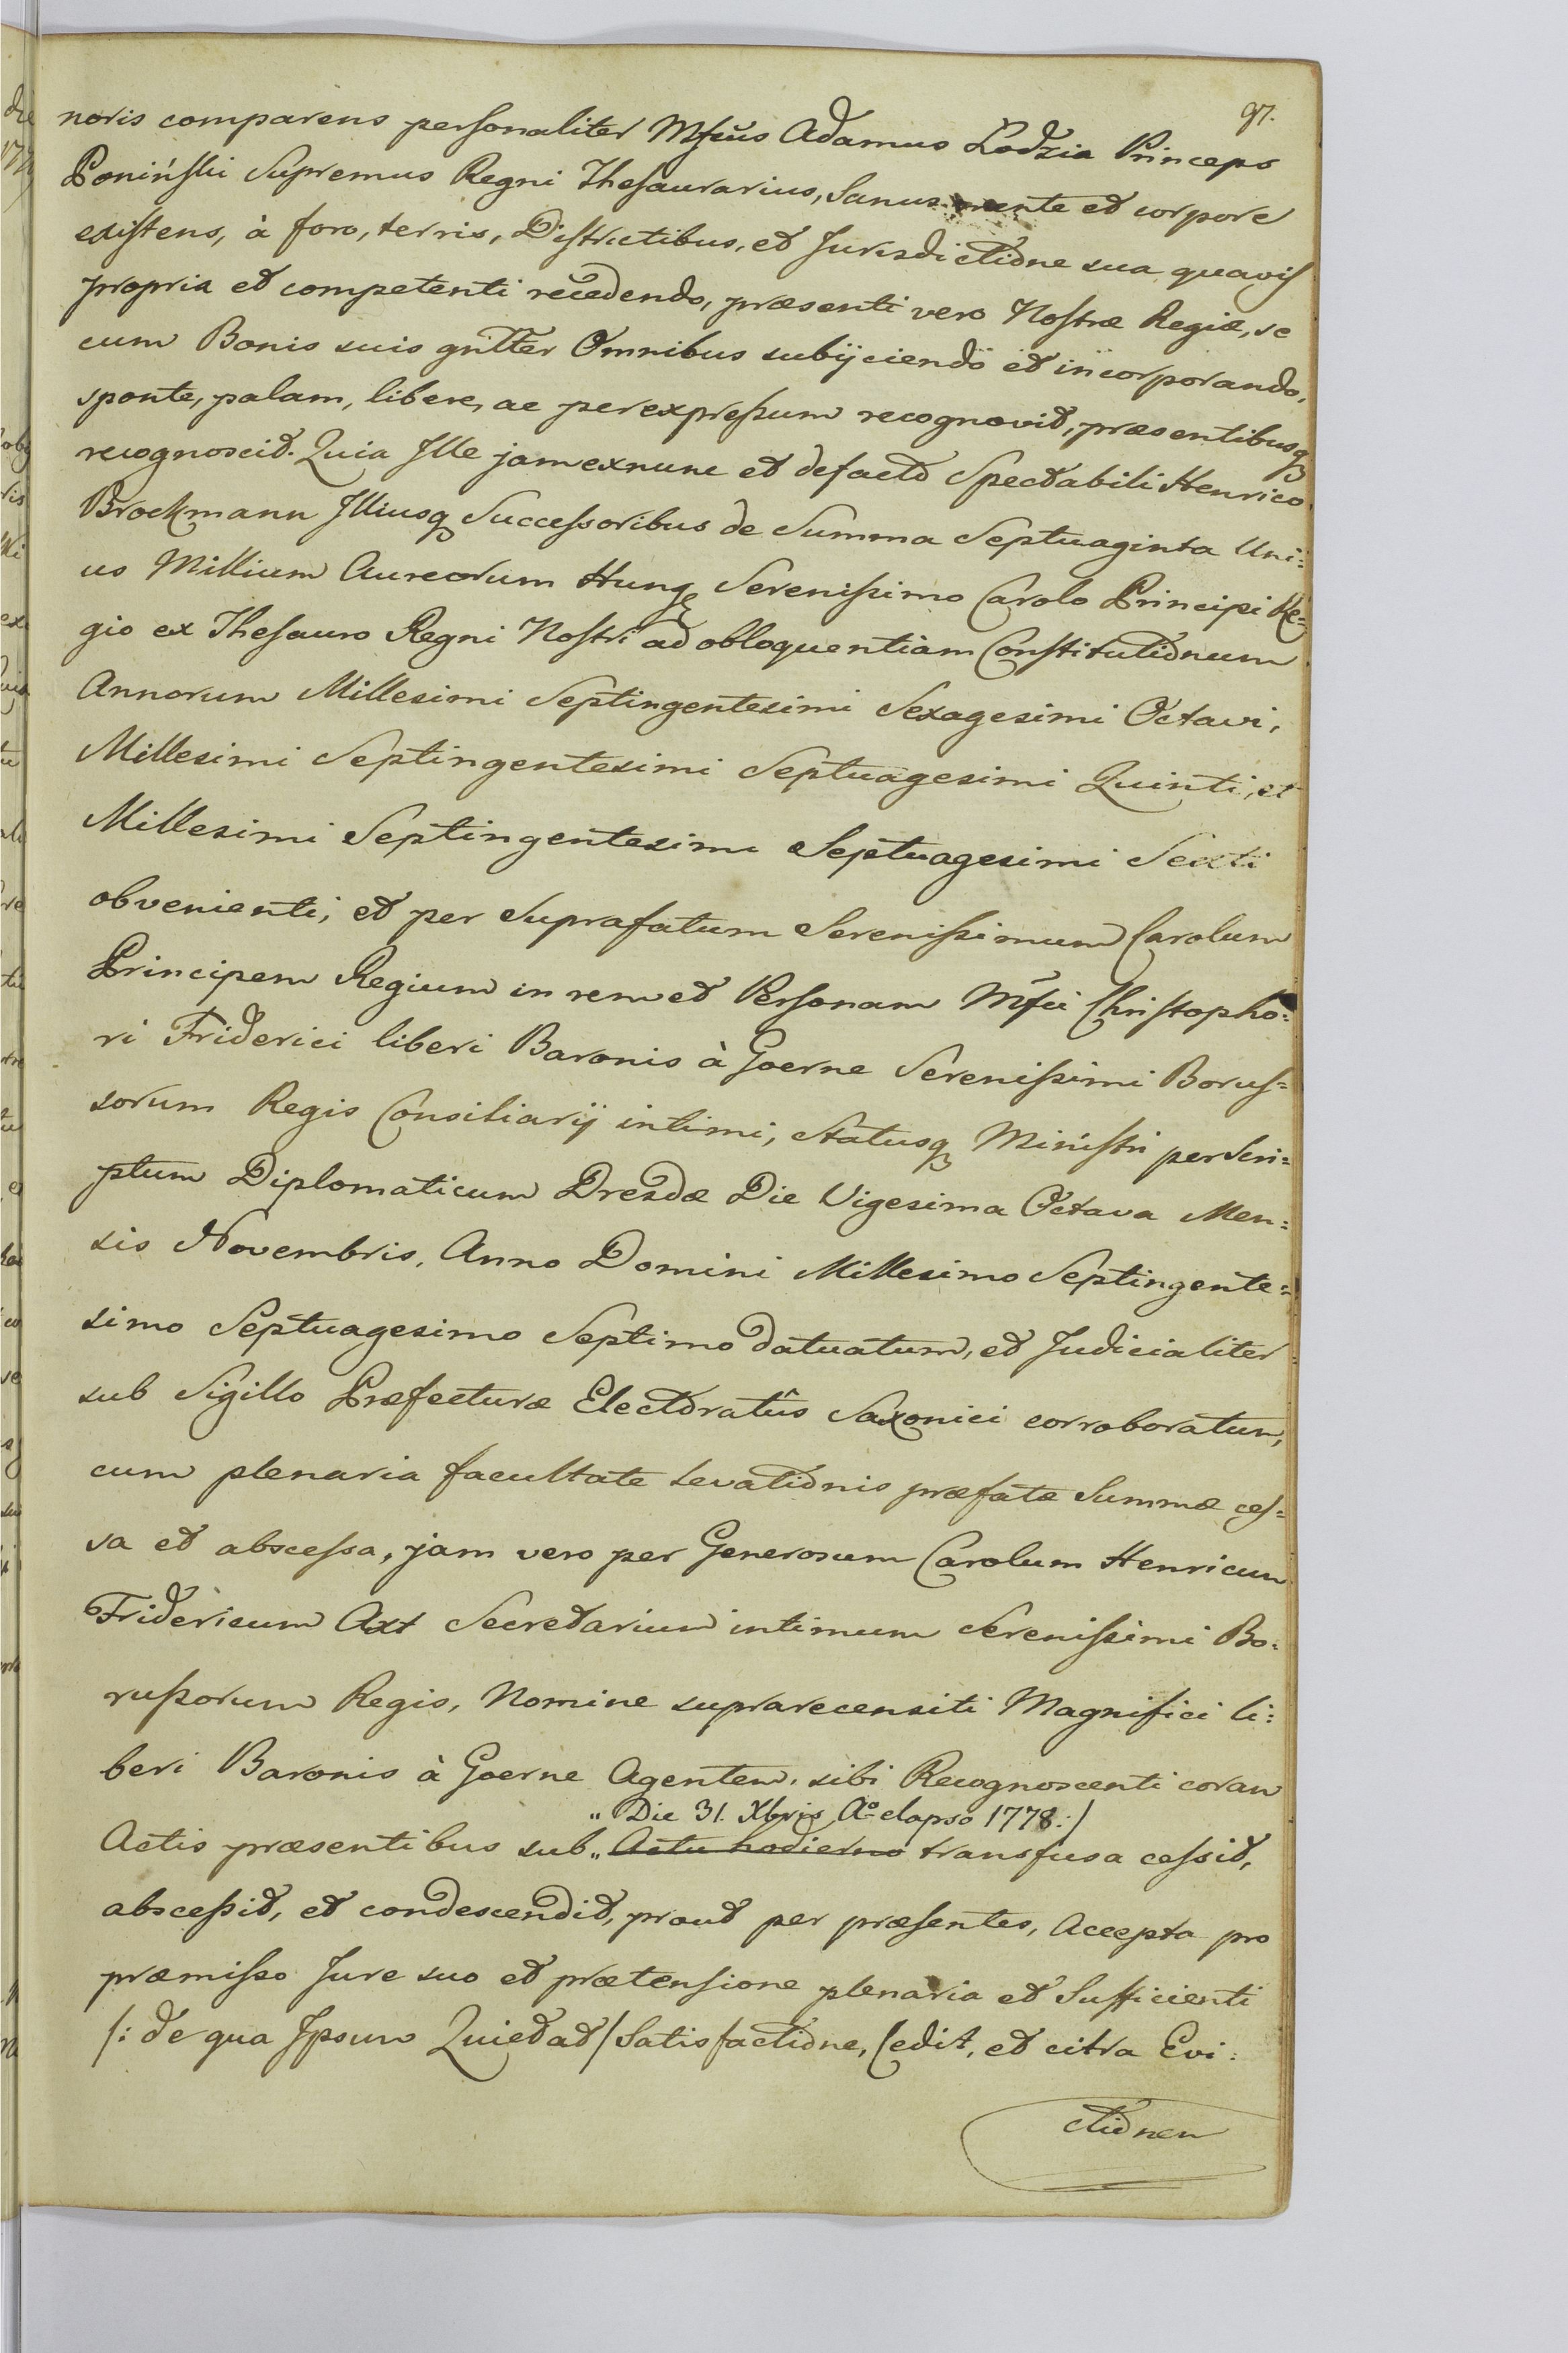 97.
noris comparens personaliter Mfcus Adamus Lodzia Princeps
Poniński Supremus Regni Thesaurarius, Sanus mente et corpore
existens, à foro, terris, Districtibus, et Jurisdictione sua quavis
propria et competenti recedendo, præsenti vero Nostræ Regiæ, se
cum Bonis suis gnltter Omnibus subijciendo et incorporando,
sponte, palam, libere, ac per expressum recognovit, præsentibusq
recognoscit. Quia Ille jam exnunc et defacto Spectabili Henrico
Brockmann Illiusq Successoribus de Summa Septuaginta Uni=
us Millium Aureorum Hung Serenissimo Carolo Principi Re=
gio ex Thesauro Regni Nostri ad obloquentiam Constitutionum
Annorum Millesimi Septingentesimi Sexagesimi Octavi,
Millesimi Septingentesimi Septuagesimi Quinti, et
Millesimi Septingentesimi Septuagesimi Sexti
obvenienti, et per Suprafatum Serenissimum Carolum
Principem Regium in rem et Personam Mfci Christopho=
ri Friderici liberi Baronis à Goerne Serenissimi Borus=
sorum Regis Consiliarij intimi, Statusq Ministri per Scri=
ptum Diplomaticum Dresdæ Die Vigesima Octava Men=
sis Novembris, Anno Domini Millesimo Septingente=
simo Septuagesimo Septimo datuatum, et Judicialiter
sub Sigillo Præfecturæ Electoratûs Saxonici corroboratum,
cum plenaria facultate levationis præfatæ Summæ ces=
sa et abscessa, jam vero per Generosum Carolum Henricum
Fridericum Axt Secretarium intimum Serenissimi Bo=
russorum Regis, Nomine suprarecensiti Magnifici li=
beri Baronis à Goerne Agentem, sibi Recognoscenti coram
„ Die 31. Xbris Aº elapso 1778 :/
Actis præsentibus sub „ Actu hodierno transfusa cessit,
abscessit, et condescendit, prout per præsentes, Accepta pro
præmisso Jure suo et prætensione plenaria et Sufficienti
/: de qua Ipsum Quietat / Satisfactione, Cedit, et citra Evi=
ctionem